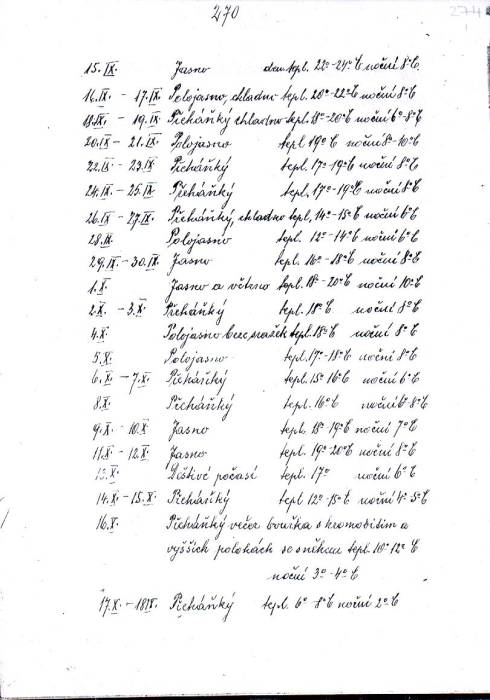 270
274
15. IX. Jasno den. tepl. 22°-24°C noční 8°C
16. IX. - 17. IX. Polojasno, chladno tepl. 20°-22°C noční 8°C
18. IX. - 19. IX. Přeháňký chladno tepl. 18°-20°C noční 6°-8°C
20. IX - 21. IX. Polojasno tepl 19°C noční 8°-10°C
22. IX - 23. IX Přeháňký tepl. 17°-19°C noční 8°C
24. IX. - 25. IX. Přeháňký tepl. 17°-19°C noční 8°C
26. IX - 27. IX. Přeháňký, chladno tepl. 14°-15°C noční 6°C
28. IX. Polojasno tepl. 12°-14°C noční 6°C
29. IX. - 30. IX. Jasno tepl. 16°-18°C noční 8°C
1. X. Jasno a větrno tepl. 18°-20°C noční 10°C
2. X. - 3. X. Přeháňký tepl. 18°C noční 8°C
4. X. Polojasno beze srážek tepl. 18°C noční 8°C
5. X. Polojasno tepl. 17°-18°C noční 8°C
6. X. - 7. X. Přeháňký tepl. 15° 16°C noční 6°C
8. X. Přeháňký tepl. 16°C noční 6°-8°C
9. X. - 10. X. Jasno tepl. 18° 19°C noční 7°C
11. X. - 12. X. Jasno tepl. 19°-20°C noční 8°C
13. X. Deštivé počasí tepl. 17° noční 6°C
14. X. - 15. X. Přeháňký tepl 12°-15°C noční 4°-5°C
16. X. Přeháňký večer bouřka s hromobitím a
vyšších polohách se sněhem tepl. 10° 12°C
noční 3°-4°C
17. X. - 18. X. Přeháňký tepl. 6°-8°C noční 2°C